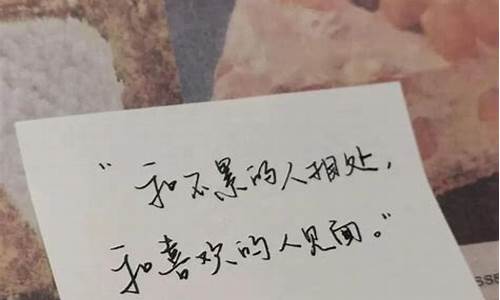 “和不累的人相处,
和喜欢的人见面。”